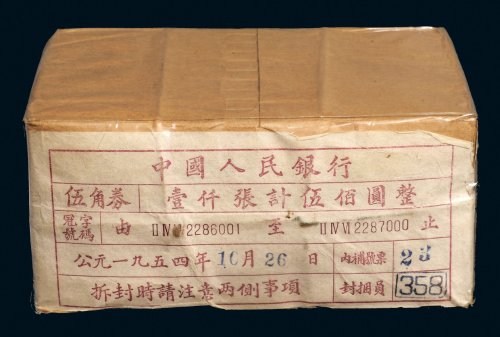 中國人民銀行
伍角券 壹仟張計伍佰圓整
冠字號碼 由 ⅡⅣⅥ2286001 至 ⅡⅣⅥ2287000 止
公元一九五四年10月26日 內補號票 23
拆封時請注意兩側事項 封捆員 358